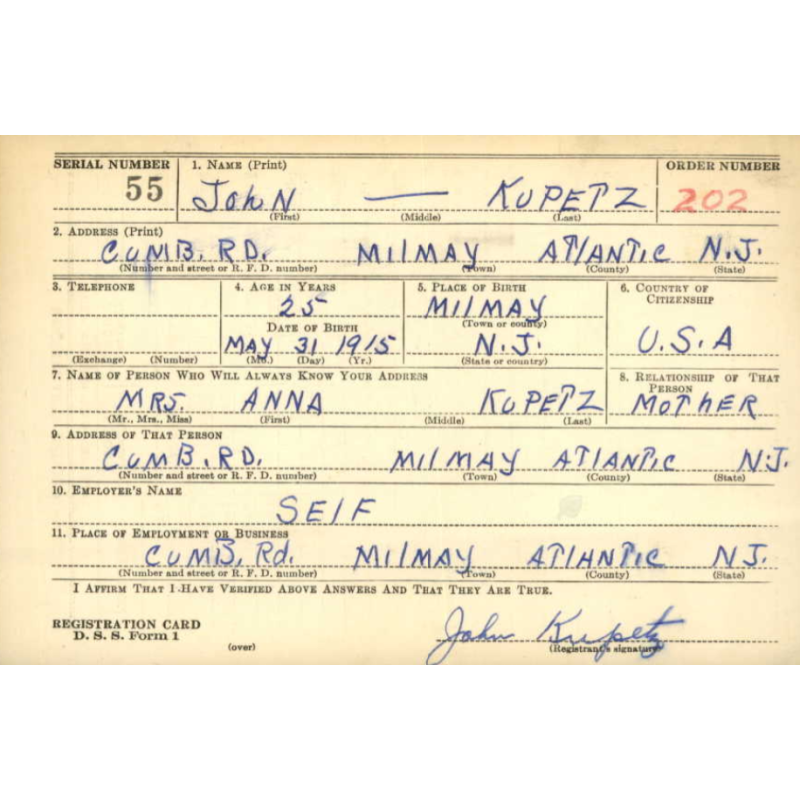 SERIAL NUMBER 1. NAME (Print) ORDER NUMBER
55 JOHN — KUPETZ 202
(First) (Middle) (Last)
2. ADDRESS (Print)
CUMB. RD. MILMAY ATLANTIC N.J.
(Number and street or R. F. D. number) (Town) (County) (State)
3. TELEPHONE 4. AGE IN YEARS 5. PLACE OF BIRTH 6. COUNTRY OF CITIZENSHIP
25 MILMAY
DATE OF BIRTH (Town or county)
MAY 31 1915 N.J. U.S.A
(Exchange) (Number) (Mo.) (Day) (Yr.) (State or country)
7. NAME OF PERSON WHO WILL ALWAYS KNOW YOUR ADDRESS 8. RELATIONSHIP OF THAT PERSON
MRS. ANNA KUPETZ MOTHER
(Mr., Mrs., Miss) (First) (Middle) (Last)
9. ADDRESS OF THAT PERSON
CUMB. RD. MILMAY ATLANTIC N.J.
(Number and street or R. F. D. number) (Town) (County) (State)
10. EMPLOYER'S NAME
SELF
11. PLACE OF EMPLOYMENT OR BUSINESS
CUMB, Rd. MILMAY ATLANTIC NJ.
(Number and street or R. F. D. number) (Town) (County) (State)
I AFFIRM THAT I HAVE VERIFIED ABOVE ANSWERS AND THAT THEY ARE TRUE.
REGISTRATION CARD
D. S. S. Form 1 John Kupetz
(over) (Registrant's signature)